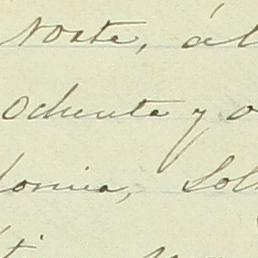 Norte, ál
Ochenta y o
lonia, Sol